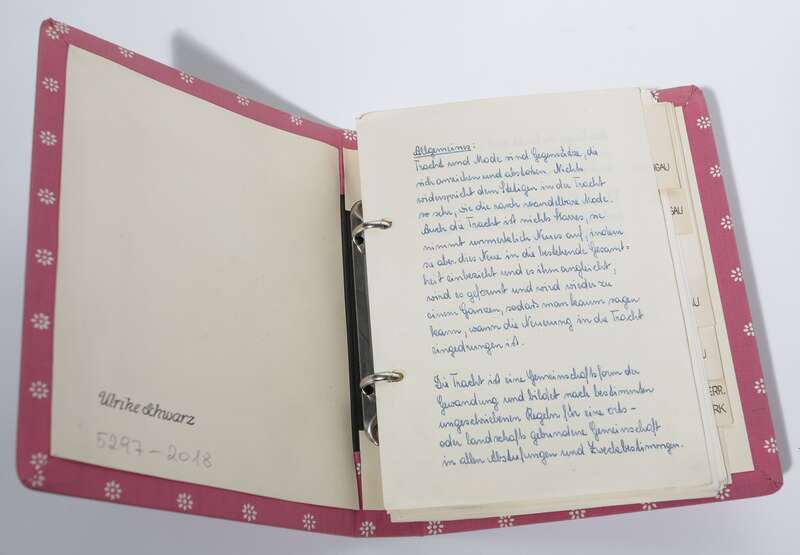 Ulrike Schwarz
5297-2018
Allgemeines:
Tracht und Mode sind Gegensätze, die
sich anziehen und abstoßen. Nichts
widerspricht dem Stetigen in der Tracht
so sehr, wie die rasch wandelbare Mode.
Auch die Tracht ist nichts Starres, sie
nimmt unmerklich Neues auf, indem
sie aber dies Neue in die bestehende Gesamt-
heit einbezieht und es ihm angleicht,
wird es geformt und wird wieder zu
einem Ganzen, sodaß man kaum sagen
kann, wann die Neuerung in die Tracht
eingedrungen ist.
Die Tracht ist eine Gemeinschaftsform der
Gewandung und bildet nach bestimmten
ungeschriebenen Regeln für eine orts-
oder landschaftsgebundene Gemeinschaft
in allen Abstufungen und Zweckbestimmungen.
GAU
GAU
AU
U
ERR.
RK